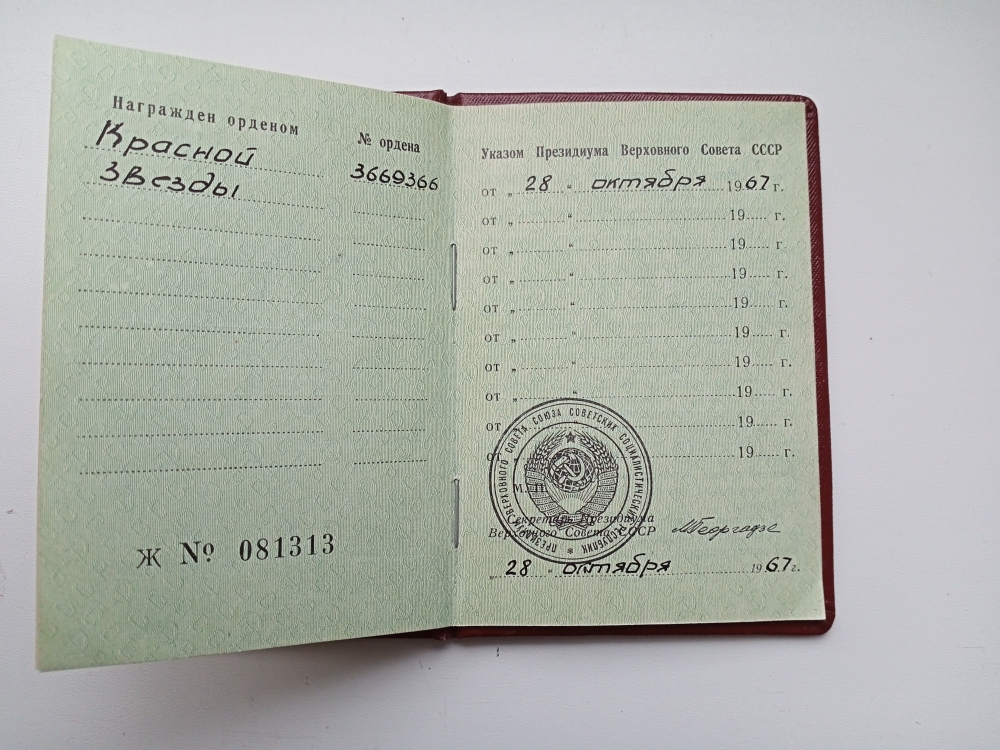 Награжден орденом
№ ордена
Красной
3669366
Звезды
Ж № 081313
Указом Президиума Верховного Совета СССР
от „ 28 “ октября 1967 г.
от „ “ 19 г.
от „ “ 19 г.
от „ “ 19 г.
от „ “ 19 г.
от „ “ 19 г.
от „ “ 19 г.
от „ “ 19 г.
от 19 г.
от 19 г.
ПРЕЗИДИУМ ВЕРХОВНОГО СОВЕТА СОЮЗА СОВЕТСКИХ СОЦИАЛИСТИЧЕСКИХ РЕСПУБЛИК
М. П.
Секретарь Президиума
Верховного Совета СССР
МГеоргадзе
„ 28 “ октября 1967 г.